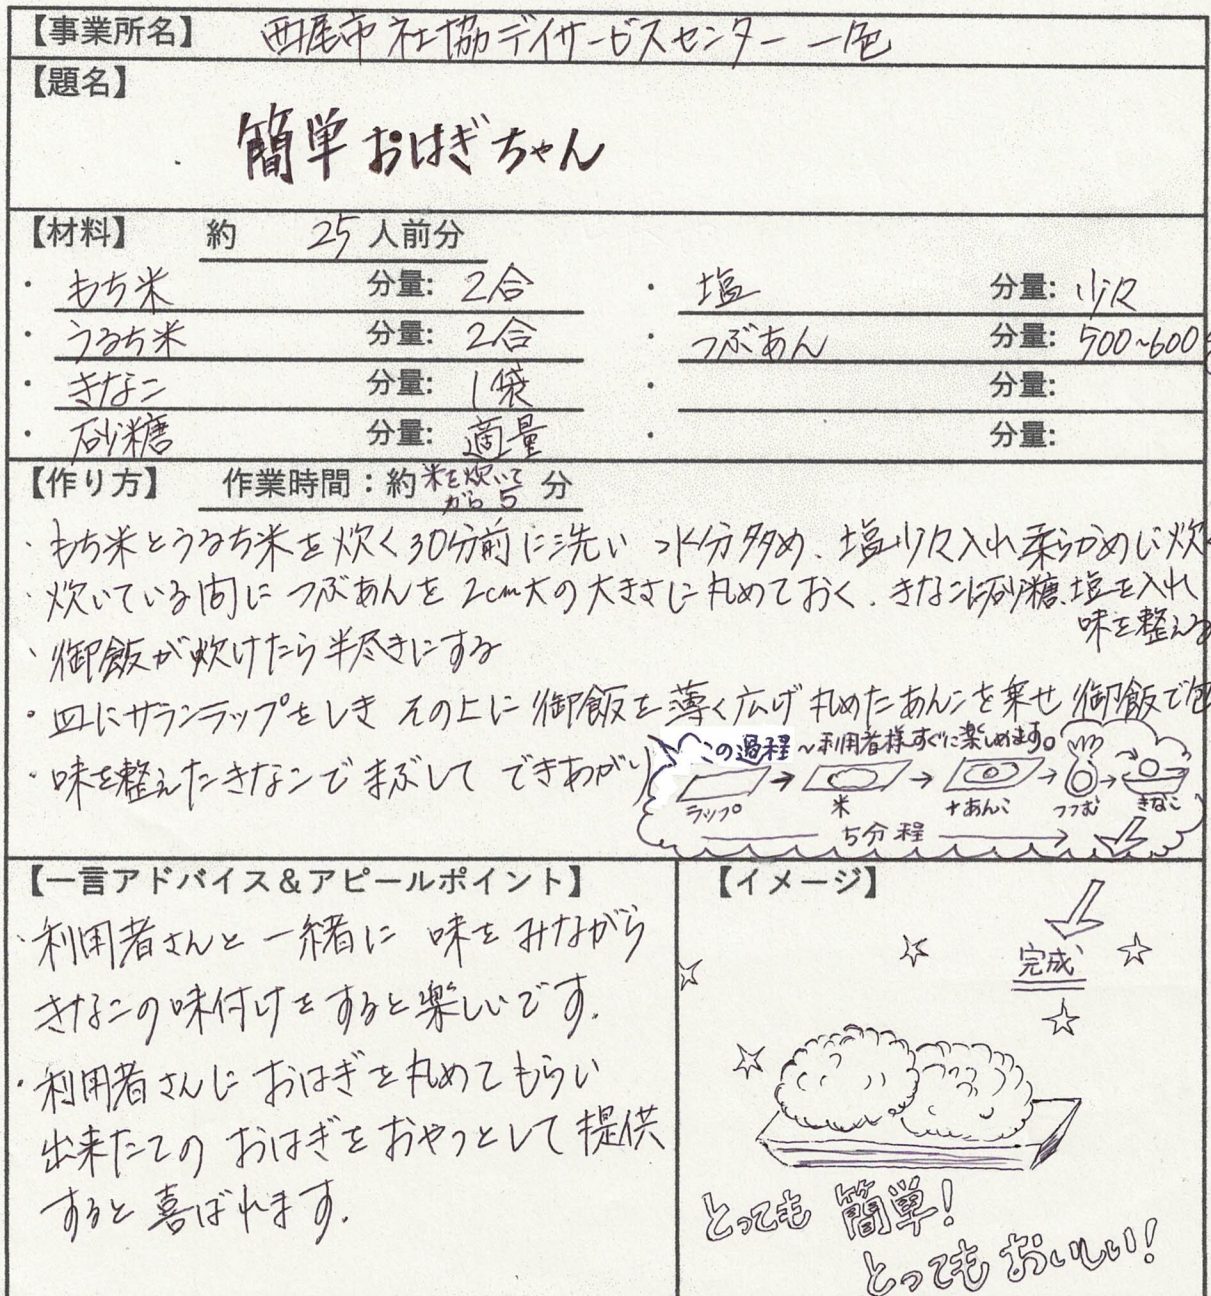 【事業所名】 西尾市社協デイサービスセンター 一色
【題名】
簡単おはぎちゃん
【材料】 約 25 人前分
・ もち米 分量: 2合 ・ 塩 分量: 少々
・ うるち米 分量: 2合 ・ つぶあん 分量: 500~600g
・ きなこ 分量: 1袋 ・ 分量:
・ 砂糖 分量: 適量 ・ 分量:
【作り方】 作業時間:約 米を炊いてから5 分
・もち米とうるち米を炊く30分前に洗い 水分多め、塩少々入れ柔らかめに炊く
・炊いている間に つぶあんを2cm大の大きさに丸めておく. きなこに砂糖、塩を入れ
味を整える
・御飯が炊けたら半尽きにする
・皿にサランラップをしき その上に御飯を薄く広げ 丸めたあんこを乗せ 御飯で包
・味を整えたきなこで まぶして できあがり
この過程~利用者様すぐに楽しめます。
ラップ → 米 → +あんこ → つつむ → きなこ
5分程
【一言アドバイス&アピールポイント】
・利用者さんと一緒に 味をみながら
きなこの味付けをすると楽しいです.
・利用者さんに おはぎを丸めてもらい
出来たての おはぎを おやつとして提供
すると 喜ばれます.
【イメージ】
完成
とっても 簡単!
とっても おいしい!